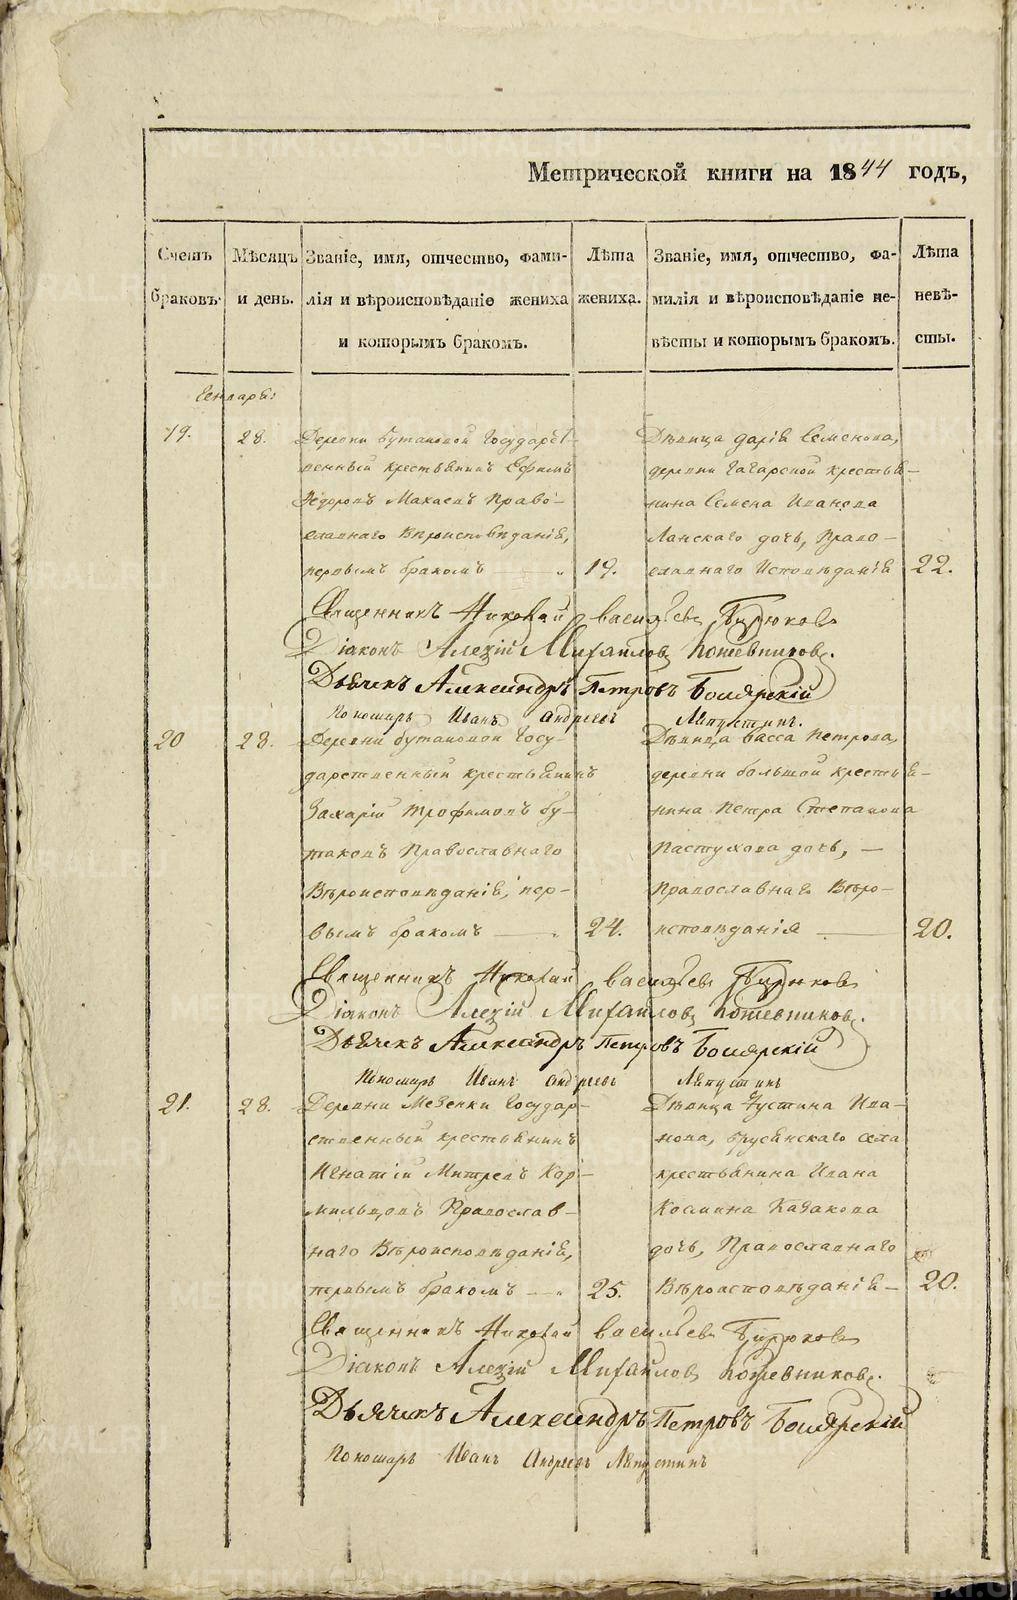 Метрической книги на 1844 годъ,
Счетъ браковъ.
Мѣсяцъ и день.
Званіе, имя, отчество, фами-
лія и вѣроисповѣданіе жениха
и которымъ бракомъ.
Лѣта жениха.
Званіе, имя, отчество, фа-
милія и вѣроисповѣданіе не-
вѣсты и которымъ бракомъ.
Лѣта невѣ-
сты.
19.
28.
Деревни Бутаковой Государст-
венный крестьянинъ Ефимъ
Ѳедоровъ Макаевъ Право-
славнаго Вѣроисповѣданія,
первымъ бракомъ
19.
Дѣвица Дарія Семенова,
деревни Гагарской крестья-
нина Семена Иванова
Ланскаго дочь, Право-
славнаго Исповѣданія
22.
Священникъ Николай Васильевъ Бирюковъ
Діаконъ Алексій Михайловъ Кожевниковъ.
Дьячекъ Александръ Петровъ Боярскій
Пономарь Иванъ Андреевъ Ляпустинъ.
20
28.
Деревни Бутаковой Госу-
дарственный крестьянинъ
Захарій Трофимовъ Бу-
таковъ Православнаго
Вѣроисповѣданія, пер-
вымъ бракомъ
24.
Дѣвица Васса Петрова,
деревни Большой крестья-
нина Петра Степанова
Пастухова дочь,
Православнаго Вѣро-
исповѣданія
20.
Священникъ Николай Васильевъ Бирюковъ
Діаконъ Алексій Михайловъ Кожевниковъ.
Дьячекъ Александръ Петровъ Боярскій
Пономарь Иванъ Андреевъ Ляпустинъ
21.
28.
Деревни Мезенки Государ-
ственный крестьянинъ
Игнатій Митревъ Кор-
мильцовъ Православ-
наго Вѣроисповѣданія,
первымъ бракомъ
25.
Дѣвица Іустина Ива-
нова, Брусянскаго села
крестьянина Ивана
Космина Казакова
дочь, Православнаго
Вѣроисповѣданія
20.
Священникъ Николай Васильевъ Бирюковъ
Діаконъ Алексій Михайловъ Кожевниковъ.
Дьячекъ Александръ Петровъ Боярскій
Пономарь Иванъ Андреевъ Ляпустинъ